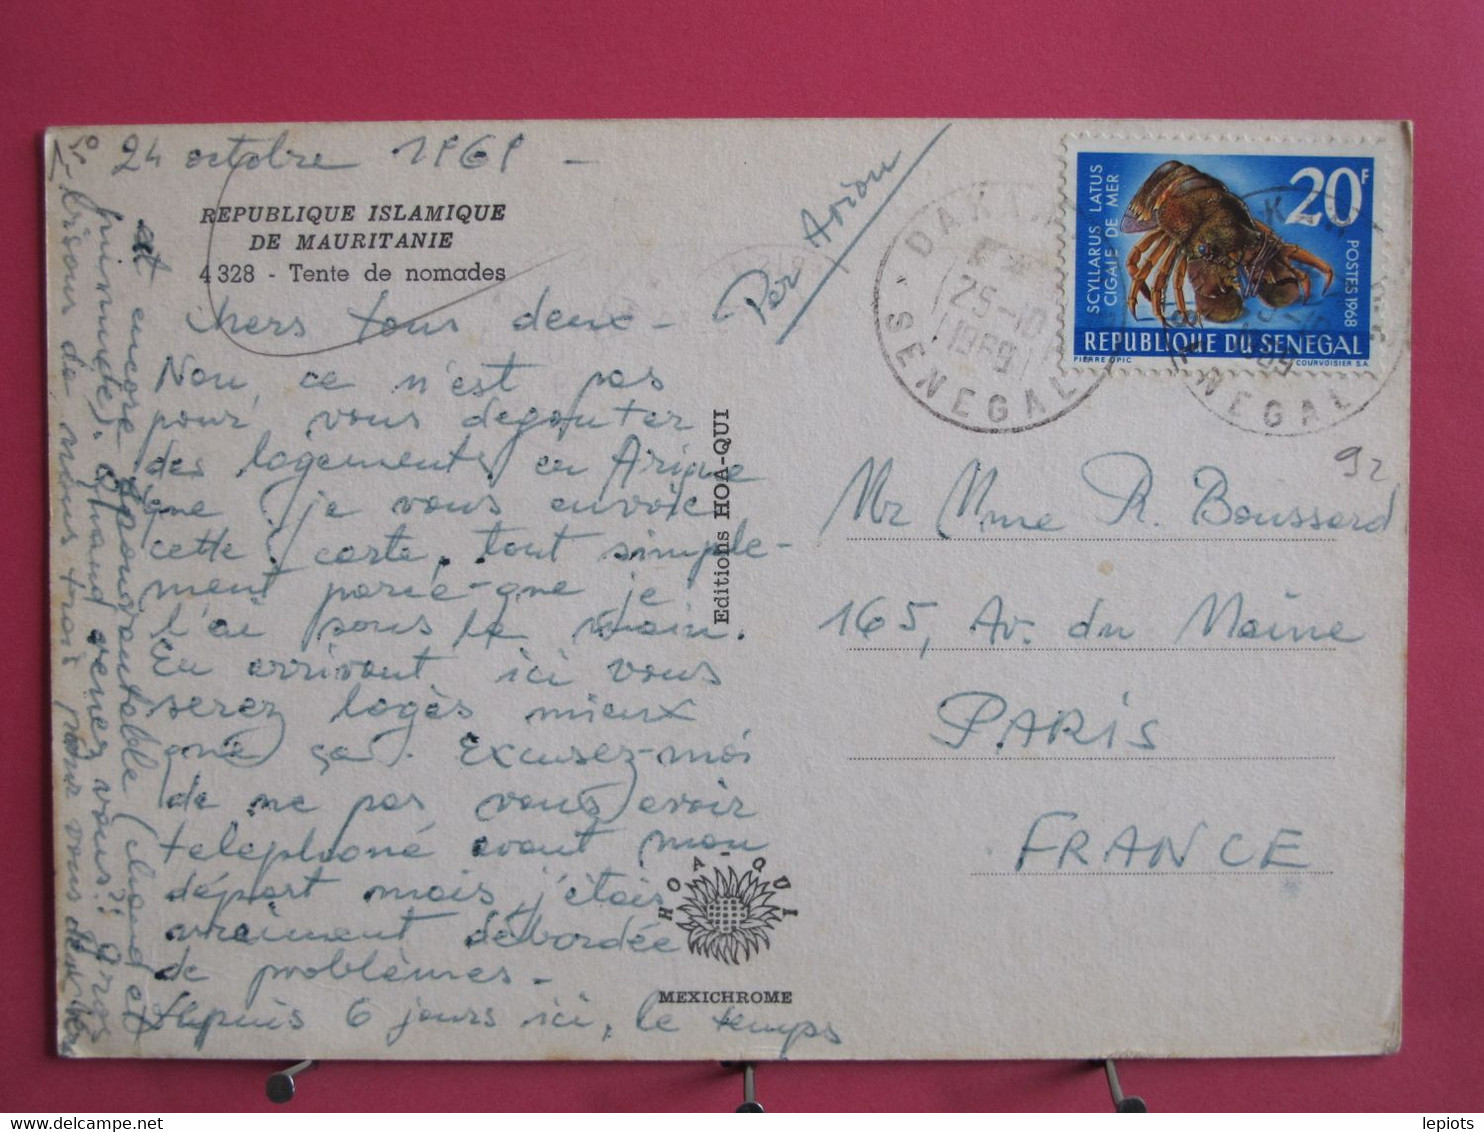 24 octobre 1969 -
REPUBLIQUE ISLAMIQUE
DE MAURITANIE
4 328 - Tente de nomades
Chers tous deux -
Non, ce n'est pas
pour vous degouter
des logements en Afrique
que je vous envoie
cette carte, tout simple-
ment parce-que je
l'ai sous la main.
En arrivant ici vous
serez logés mieux
que ça. Excusez-moi
de ne pas vous avoir
telephoné avant mon
départ mais j'étais
vraiment débordée
de problèmes -
depuis 6 jours ici, le temps
est encore épouvantable (chaud et
humide). Quand venez vous? Gros
bisous de nous trois pour vous deux
Per Avion
Editions HOA-QUI
HOA-QUI
MEXICHROME
DAKAR
25-10
1969
SENEGAL
SCYLLARUS LATUS
CIGALE DE MER
20F
POSTES 1968
REPUBLIQUE DU SENEGAL
PIERRE OPIC
COURVOISIER S.A.
92
Mr Mme R. Boussard
165, Av. du Maine
PARIS
FRANCE
lepiots